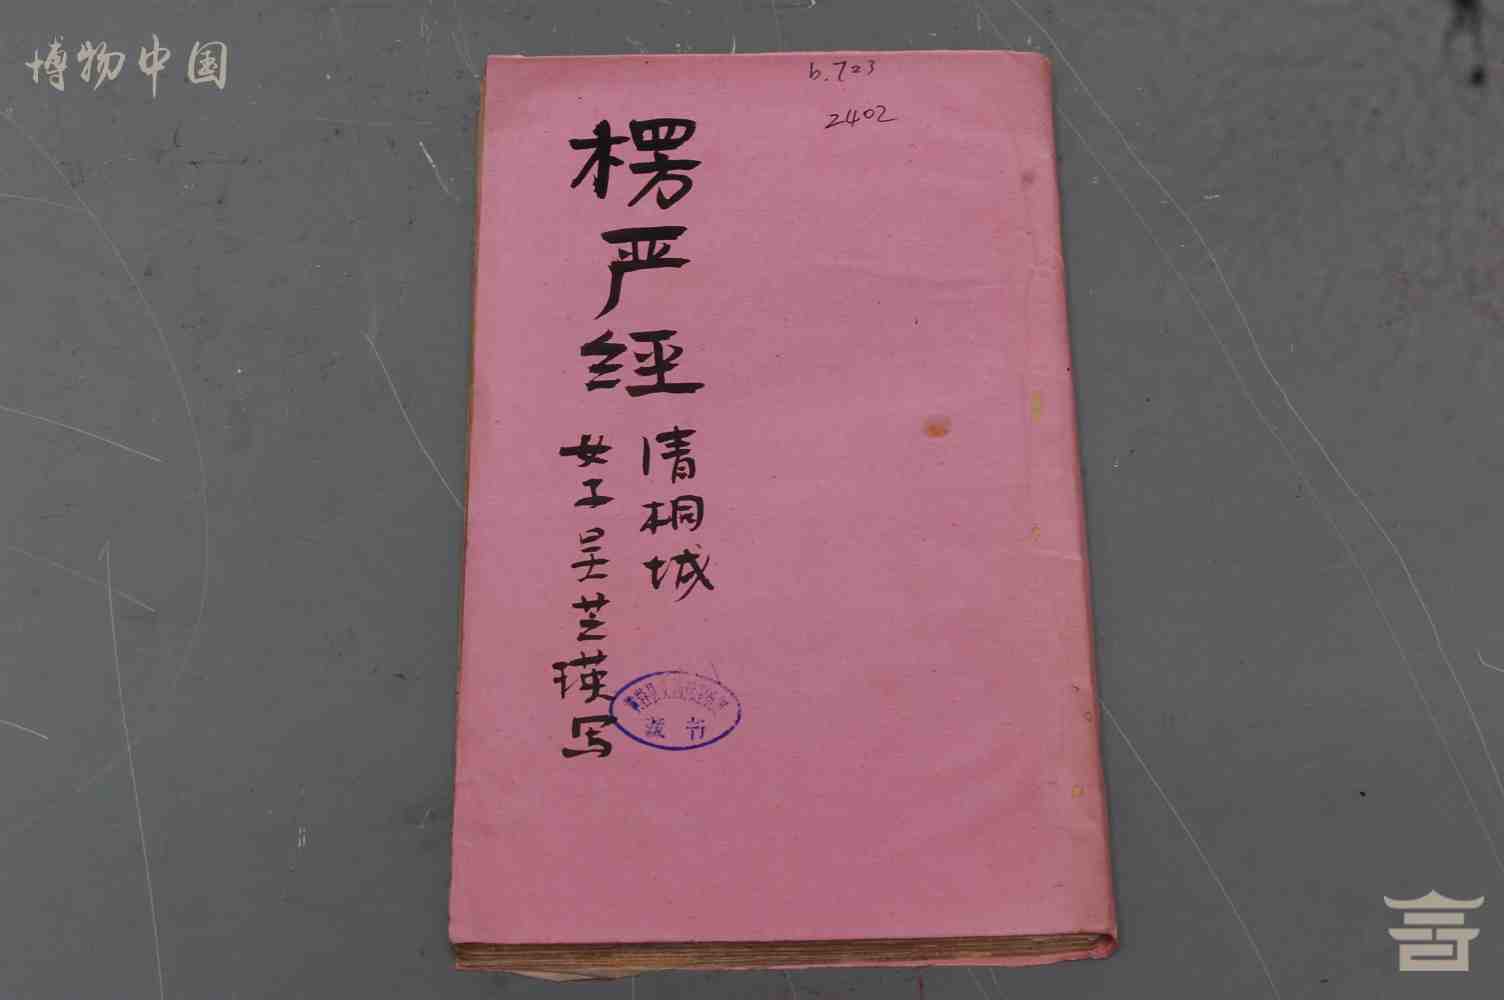 博物中国
b.723
2402
楞严经
清桐城
女子吴芝瑛写
藏书